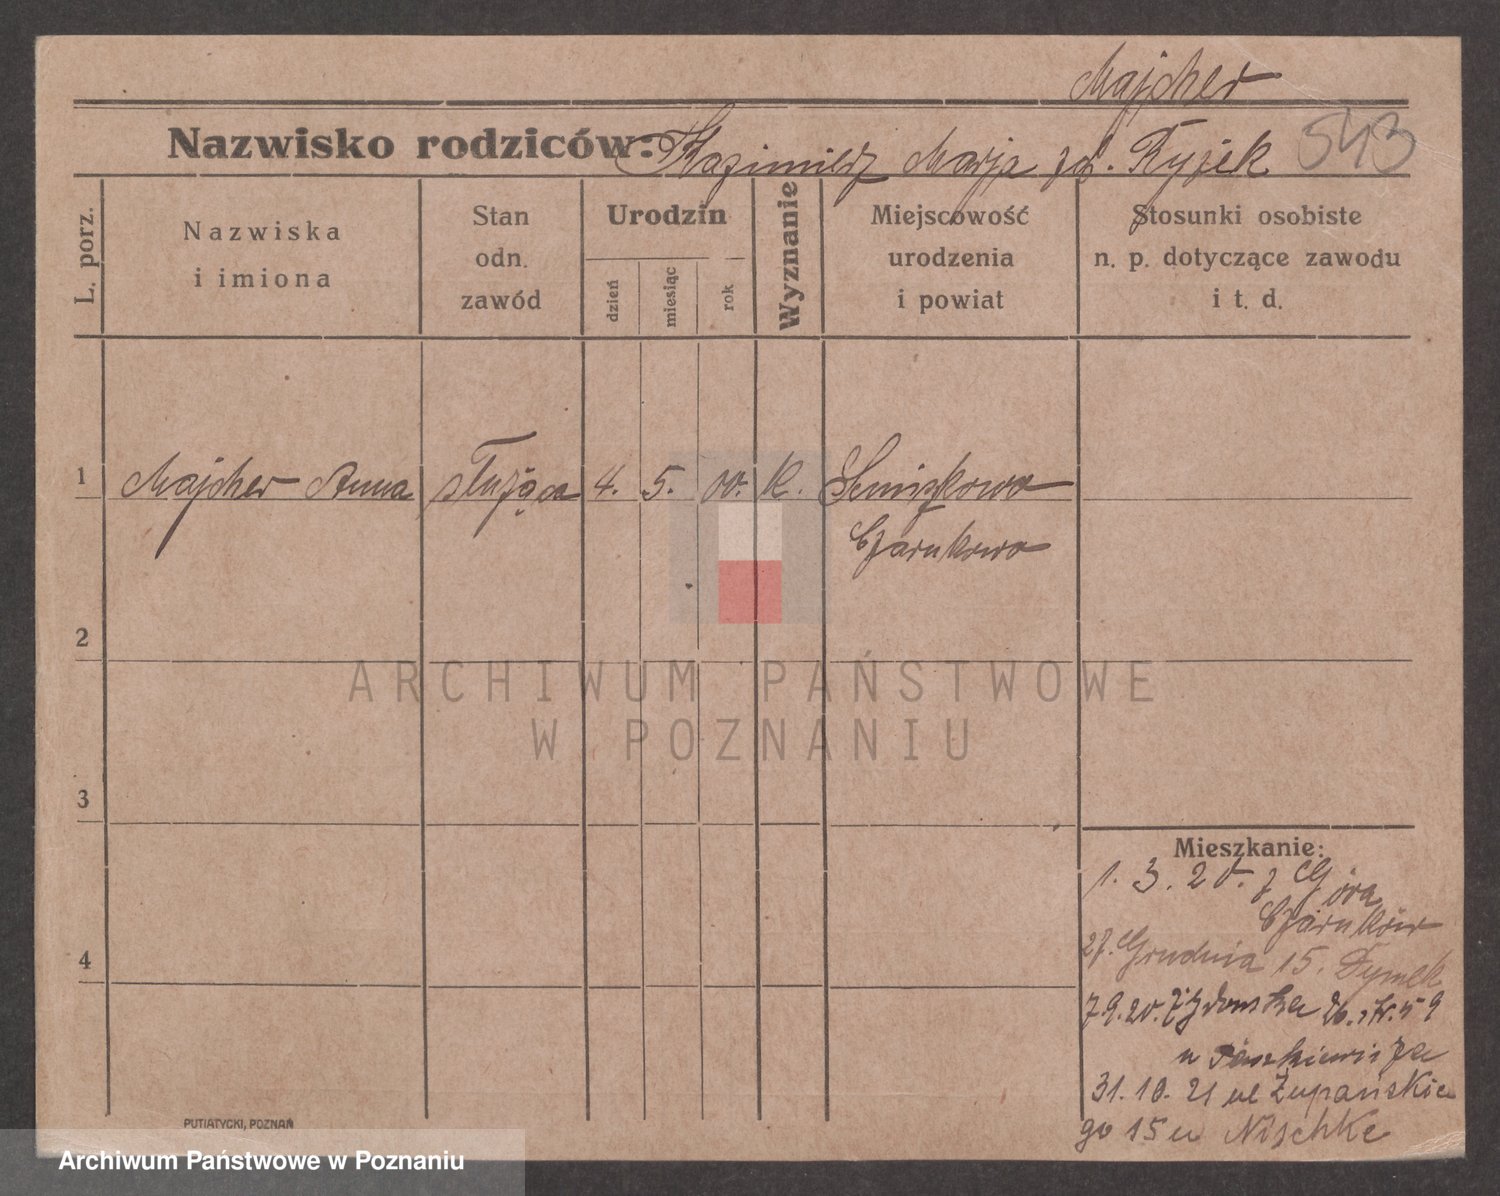 Majcher
Nazwisko rodziców: Kazimierz Marja zd. Ryżek 543
L. porz.
Nazwiska
i imiona
Stan
odn.
zawód
Urodzin
dzień
miesiąc
rok
Wyznanie
Miejscowość
urodzenia
i powiat
Stosunki osobiste
n. p. dotyczące zawodu
i t. d.
1 Majcher Anna służąca 4. 5. 00. K.
Czarnkowo
2
ARCHIWUM PAŃSTWOWE
W POZNANIU
3
Mieszkanie:
1. 3. 20. z Góra
Czarnków
27. Grudnia 15. Dymek
7.9.20. 26. 59
u
31. 10. 21 ul Żupańskie
go 15 u Nischke
4
PUTIATYCKI, POZNAŃ
Archiwum Państwowe w Poznaniu